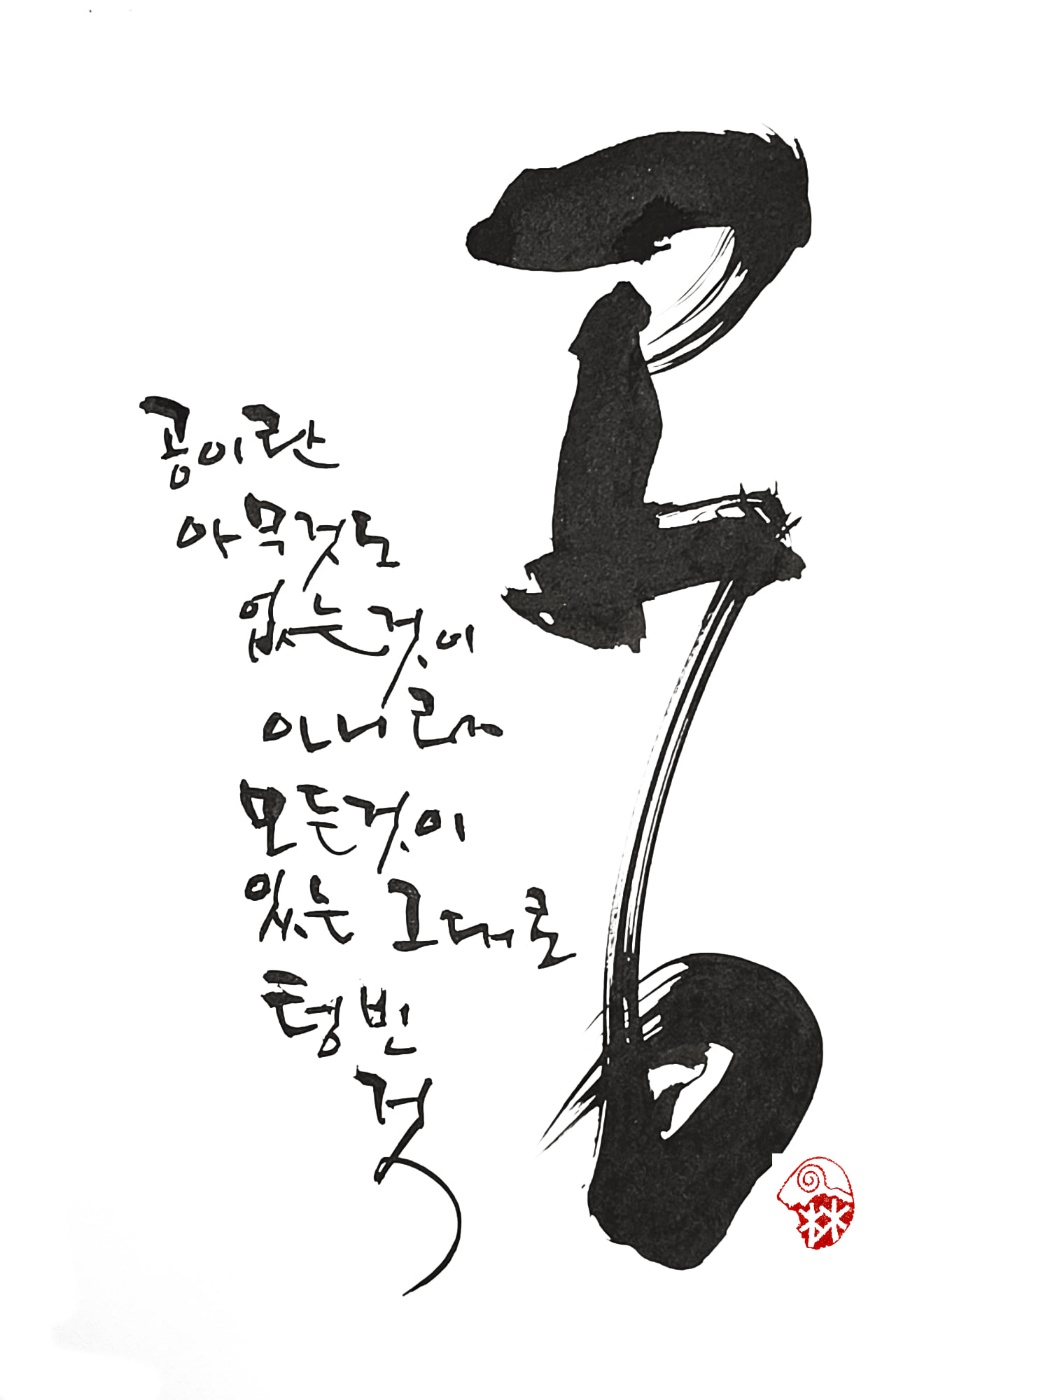 공
공이란
아무것도
없는것이
아니라
모든것이
있는 그대로
텅빈
것
林